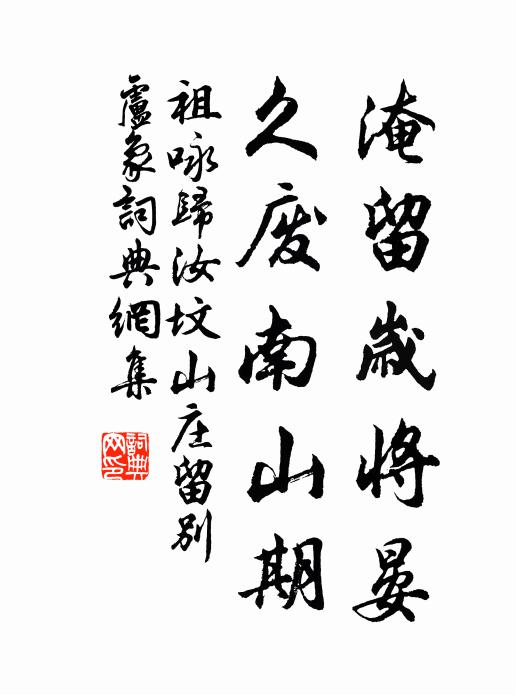 淹留歲將晏
久废南山期
祖咏歸汝坟山庄留別
盧象詞典網集
詞典网印